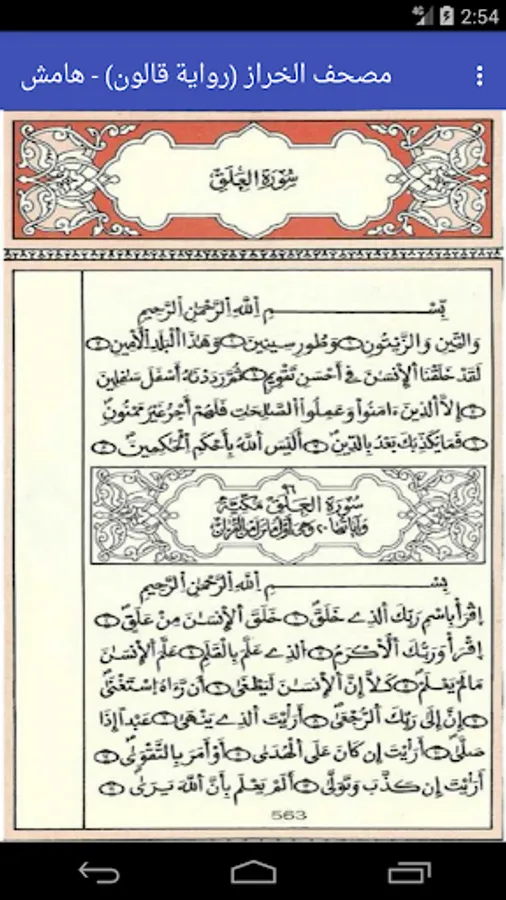 2:54
4G
مصحف الخراز (رواية قالون) - هامش
سُورَةُ الْعَلَقِ
بِسْمِ اِ۬للَّهِ اِ۬لرَّحْمَٰنِ اِ۬لرَّحِيمِ
وَالتِّينِ وَالزَّيْتُونِ ۝ وَطُورِ سِينِينَ ۝ وَهَٰذَا اَ۬لْبَلَدِ اِ۬لَامِينِ ۝
لَقَدْ خَلَقْنَا اَ۬لْإِنسَٰنَ فِي أَحْسَنِ تَقْوِيمٍ ۝ ثُمَّ رَدَدْنَٰهُ أَسْفَلَ سَٰفِلِينَ
۝ إِلَّا اَ۬لذِينَ ءَامَنُواْ وَعَمِلُواْ اُ۬لصَّٰلِحَٰتِ فَلَهُمْ أَجْرٌ غَيْرُ مَمْنُونٍ
۝ فَمَا يُكَذِّبُكَ بَعْدُ بِالدِّينِ ۝ أَلَيْسَ اَ۬للَّهُ بِأَحْكَمِ اِ۬لْحَٰكِمِينَ ۝
٩٦
سُورَةُ الْعَلَقِ مَكِّيَّةٌ
وَآيَاتُهَا ٢٠ وَهِيَ أَوَّلُ مَا نَزَلَ مِنَ الْقُرْآنِ
بِسْمِ اِ۬للَّهِ اِ۬لرَّحْمَٰنِ اِ۬لرَّحِيمِ
اِ۪قْرَأْ بِاسْمِ رَبِّكَ اَ۬لذِي خَلَقَ ۝ خَلَقَ اَ۬لْإِنسَٰنَ مِنْ عَلَقٍ ۝
اِ۪قْرَأْ وَرَبُّكَ اَ۬لْأَكْرَمُ ۝ اُ۬لذِي عَلَّمَ بِالْقَلَمِ ۝ عَلَّمَ اَ۬لْإِنسَٰنَ
مَا لَمْ يَعْلَمْ ۝ كَلَّا إِنَّ اَ۬لْإِنسَٰنَ لَيَطْغَىٰ ۝ أَن رَّءَاهُ اُ۪سْتَغْنَىٰ
۝ إِنَّ إِلَىٰ رَبِّكَ اَ۬لرُّجْعَىٰ ۝ أَرَٰيْتَ اَ۬لذِي يَنْهَىٰ ۝ عَبْداً إِذَا
صَلَّىٰ ۝ أَرَٰيْتَ إِن كَانَ عَلَى اَ۬لْهُدَىٰ ۝ أَوْ أَمَرَ بِالتَّقْوَىٰ ۝
أَرَٰيْتَ إِن كَذَّبَ وَتَوَلَّىٰ ۝ أَلَمْ يَعْلَم بِأَنَّ اَ۬للَّهَ يَرَىٰ ۝
563